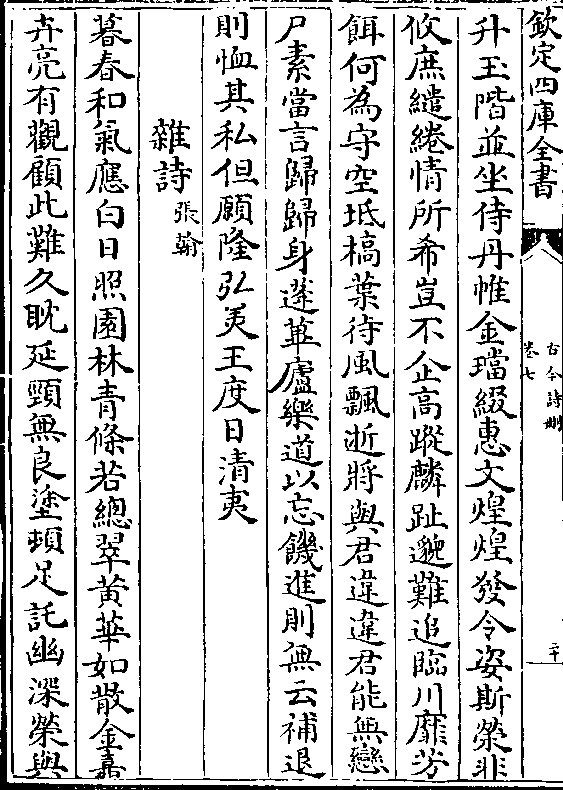 欽定四庫全書
古今詩刪
卷七
二十
升玉階並坐侍丹帷金璫綴惠文煌煌發令姿斯榮非
攸庶繾綣情所希豈不企高蹤麟趾邈難追臨川靡芳
餌何為守空坻槁葉待風飄逝將與君違違君能無戀
尸素當言歸歸身蓬蓽廬樂道以忘饑進則無云補退
則恤其私但願隆弘美王度日清夷
雜詩 張翰
暮春和氣應白日照園林青條若總翠黄華如散金嘉
卉亮有觀顧此難久耽延頸無良塗頓足託幽深榮與